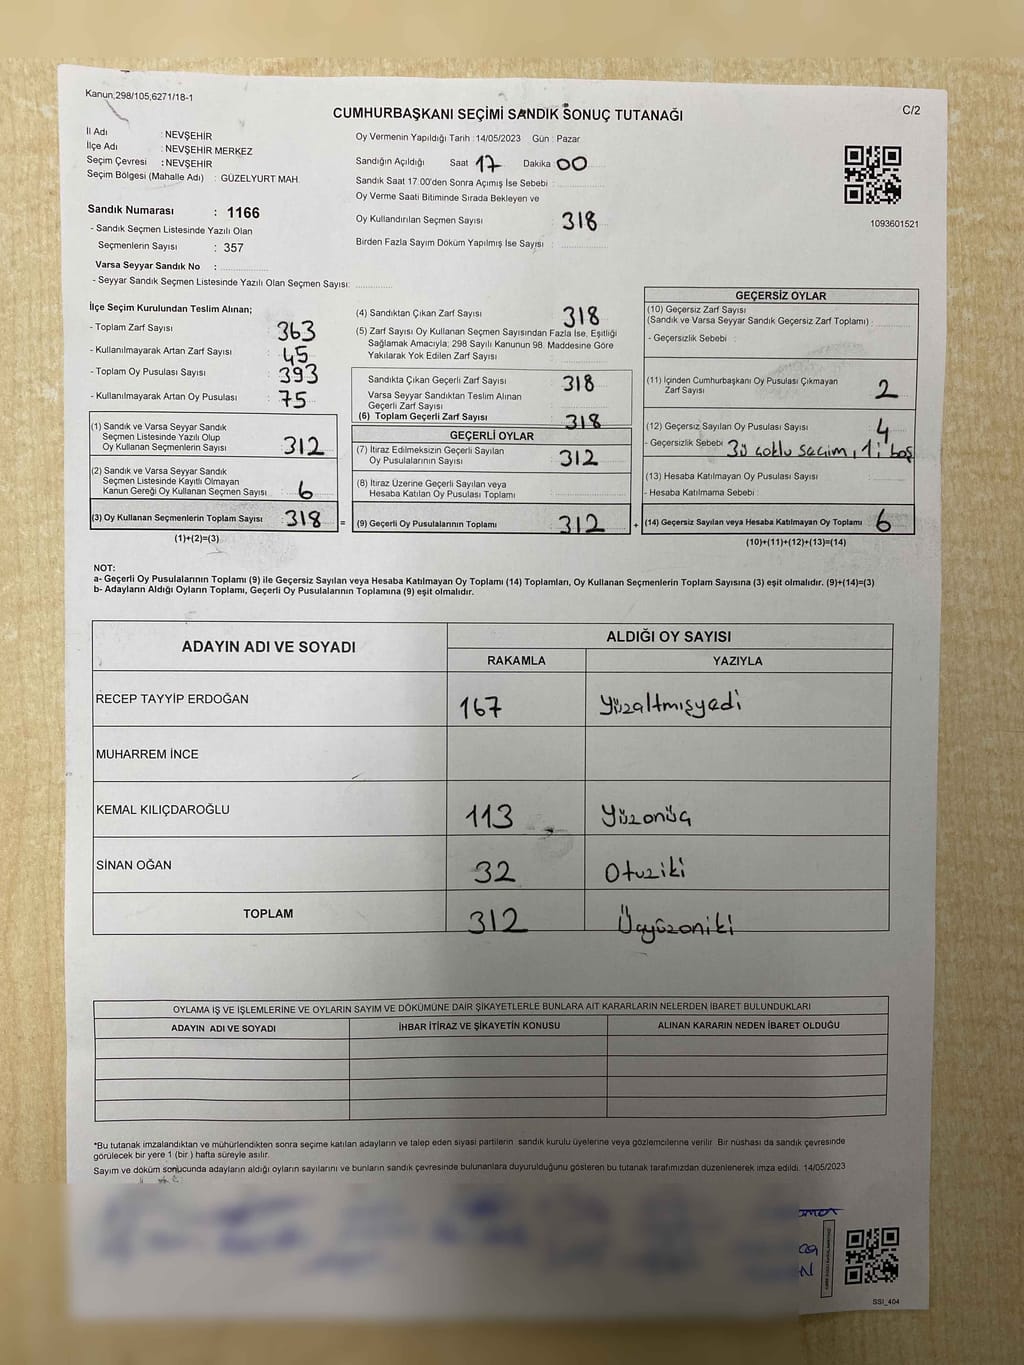 Kanun,298/105,6271/18-1
CUMHURBAŞKANI SEÇİMİ SANDIK SONUÇ TUTANAĞI
C/2
İl Adı : NEVŞEHİR
İlçe Adı : NEVŞEHİR MERKEZ
Seçim Çevresi : NEVŞEHİR
Seçim Bölgesi (Mahalle Adı) : GÜZELYURT MAH.
Sandık Numarası : 1166
- Sandık Seçmen Listesinde Yazılı Olan
Seçmenlerin Sayısı : 357
Varsa Seyyar Sandık No :
- Seyyar Sandık Seçmen Listesinde Yazılı Olan Seçmen Sayısı:
Oy Vermenin Yapıldığı Tarih : 14/05/2023 Gün : Pazar
Sandığın Açıldığı Saat 17 Dakika 00
Sandık Saat 17:00'den Sonra Açımış İse Sebebi :
Oy Verme Saati Bitiminde Sırada Bekleyen ve
Oy Kullandırılan Seçmen Sayısı : 318
Birden Fazla Sayım Döküm Yapılmış İse Sayısı :
1093601521
İlçe Seçim Kurulundan Teslim Alınan;
- Toplam Zarf Sayısı : 363
- Kullanılmayarak Artan Zarf Sayısı : 45
- Toplam Oy Pusulası Sayısı : 393
- Kullanılmayarak Artan Oy Pusulası : 75
(1) Sandık ve Varsa Seyyar Sandık
Seçmen Listesinde Yazılı Olup
Oy Kullanan Seçmenlerin Sayısı : 312
(2) Sandık ve Varsa Seyyar Sandık
Seçmen Listesinde Kayıtlı Olmayan
Kanun Gereği Oy Kullanan Seçmen Sayısı : 6
(3) Oy Kullanan Seçmenlerin Toplam Sayısı : 318 =
(1)+(2)=(3)
(4) Sandıktan Çıkan Zarf Sayısı : 318
(5) Zarf Sayısı Oy Kullanan Seçmen Sayısından Fazla İse, Eşitliği
Sağlamak Amacıyla; 298 Sayılı Kanunun 98. Maddesine Göre
Yakılarak Yok Edilen Zarf Sayısı :
Sandıkta Çıkan Geçerli Zarf Sayısı : 318
Varsa Seyyar Sandıktan Teslim Alınan
Geçerli Zarf Sayısı :
(6) Toplam Geçerli Zarf Sayısı : 318
GEÇERLİ OYLAR
(7) İtiraz Edilmeksizin Geçerli Sayılan
Oy Pusulalarının Sayısı : 312
(8) İtiraz Üzerine Geçerli Sayılan veya
Hesaba Katılan Oy Pusulası Toplamı :
(9) Geçerli Oy Pusulalarının Toplamı : 312 +
GEÇERSİZ OYLAR
(10) Geçersiz Zarf Sayısı
(Sandık ve Varsa Seyyar Sandık Geçersiz Zarf Toplamı) :
- Geçersizlik Sebebi :
(11) İçinden Cumhurbaşkanı Oy Pusulası Çıkmayan
Zarf Sayısı : 2
(12) Geçersiz Sayılan Oy Pusulası Sayısı : 4
- Geçersizlik Sebebi : 3ü çoklu seçim, 1'i boş
(13) Hesaba Katılmayan Oy Pusulası Sayısı :
- Hesaba Katılmama Sebebi :
(14) Geçersiz Sayılan veya Hesaba Katılmayan Oy Toplamı : 6
(10)+(11)+(12)+(13)=(14)
NOT:
a- Geçerli Oy Pusulalarının Toplamı (9) ile Geçersiz Sayılan veya Hesaba Katılmayan Oy Toplamı (14) Toplamları, Oy Kullanan Seçmenlerin Toplam Sayısına (3) eşit olmalıdır. (9)+(14)=(3)
b- Adayların Aldığı Oyların Toplamı, Geçerli Oy Pusulalarının Toplamına (9) eşit olmalıdır.
ADAYIN ADI VE SOYADI
ALDIĞI OY SAYISI
RAKAMLA YAZIYLA
RECEP TAYYİP ERDOĞAN 167 Yüzaltmışyedi
MUHARREM İNCE
KEMAL KILIÇDAROĞLU 113 Yüzonüç
SİNAN OĞAN 32 Otuziki
TOPLAM 312 Üçyüzoniki
OYLAMA İŞ VE İŞLEMLERİNE VE OYLARIN SAYIM VE DÖKÜMÜNE DAİR ŞİKAYETLERLE BUNLARA AİT KARARLARIN NELERDEN İBARET BULUNDUKLARI
ADAYIN ADI VE SOYADI İHBAR İTİRAZ VE ŞİKAYETİN KONUSU ALINAN KARARIN NEDEN İBARET OLDUĞU
*Bu tutanak imzalandıktan ve mühürlendikten sonra seçime katılan adayların ve talep eden siyasi partilerin sandık kurulu üyelerine veya gözlemcilerine verilir. Bir nüshası da sandık çevresinde
görülecek bir yere 1 (bir ) hafta süreyle asılır.
Sayım ve döküm sonucunda adayların aldığı oyların sayılarını ve bunların sandık çevresinde bulunanlara duyurulduğunu gösteren bu tutanak tarafımızdan düzenlenerek imza edildi. 14/05/2023
SSI_404